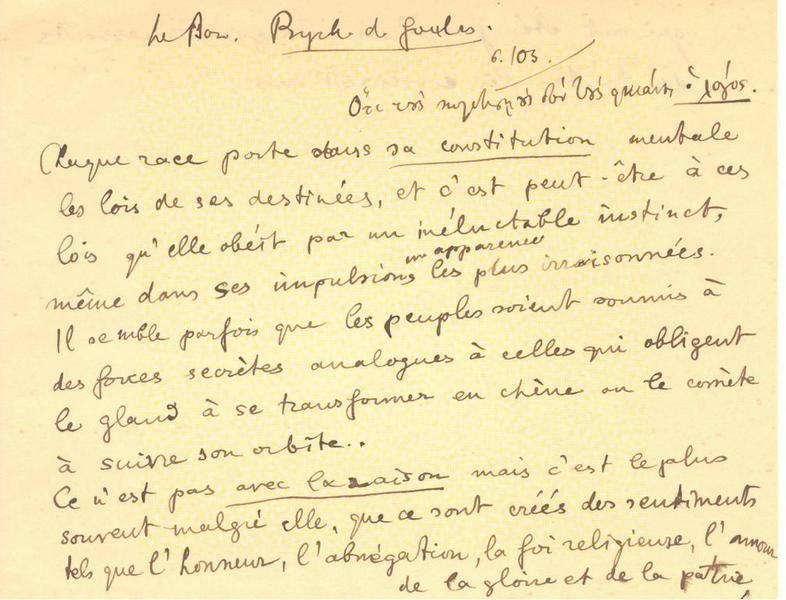 Le Bon. Psych d foules.
6./03.
Ότι τον δεν τον ο λόγος.
Chaque race porte dans sa constitution mentale
les lois de ses destinées, et c'est peut-être à ces
lois qu'elle obéit par un inéluctable instinct,
en apparence
même dans ses impulsions les plus irraisonnées.
Il semble parfois que les peuples soient soumis à
des forces secrètes analogues à celles qui obligent
le gland à se transformer en chêne ou le comète
à suivre son orbite..
Ce n'est pas avec la raison mais c'est le plus
souvent malgré elle, que ce sont créés des sentiments
tels que l'honneur, l'abnégation, la foi religieuse, l'amour
de la gloire et de la patrie